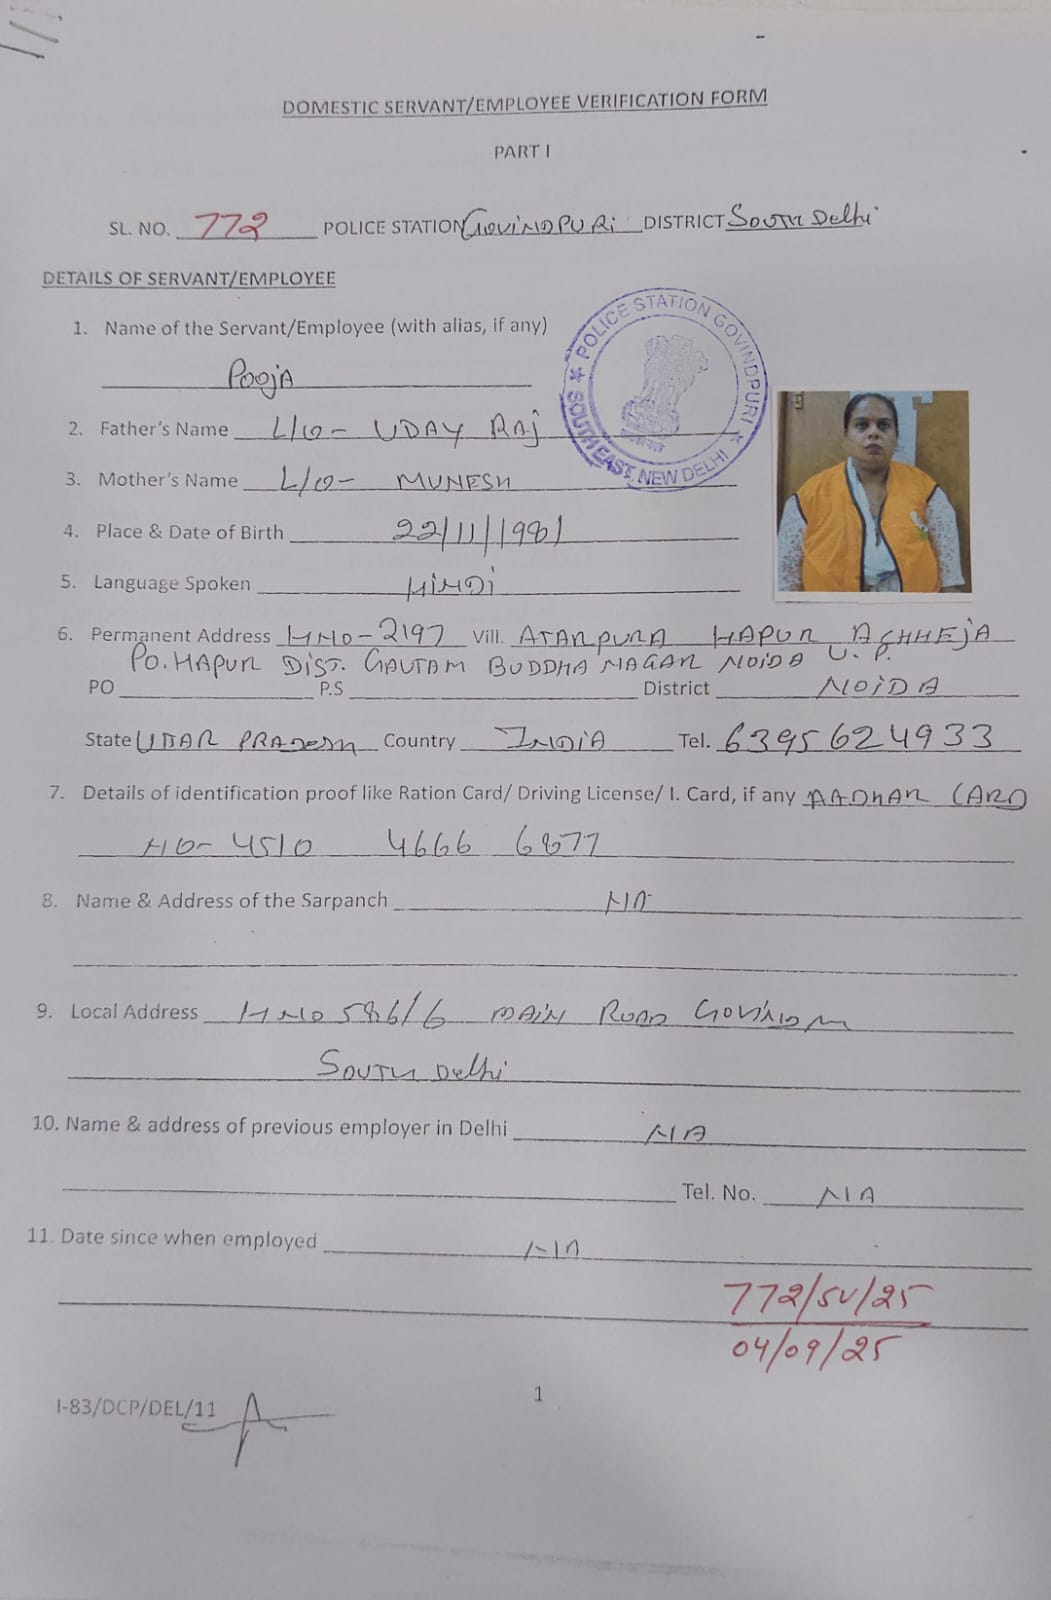 DOMESTIC SERVANT/EMPLOYEE VERIFICATION FORM
PART I
SL. NO. 772 POLICE STATION GOVINDPURI DISTRICT SOUTH Delhi
DETAILS OF SERVANT/EMPLOYEE
1. Name of the Servant/Employee (with alias, if any)
POOJA
POLICE STATION GOVINDPURI
SOUTH EAST, NEW DELHI
2. Father's Name L/O- UDAY RAJ
3. Mother's Name L/O- MUNESH
4. Place & Date of Birth 22/11/1981
5. Language Spoken HINDI
6. Permanent Address HNO-2197 Vill. ATARPURA HAPUR ACHHEJA
PO. HAPUR DIST. GAUTAM BUDDHA NAGAR NOIDA U.P.
PO P.S District NOIDA
State PRADESH Country INDIA Tel. 6395624933
7. Details of identification proof like Ration Card/ Driving License/ I. Card, if any AADHAR CARD
NO- 4510 4666 6877
8. Name & Address of the Sarpanch NA
9. Local Address HNO 586/6 MAIN ROAD
SOUTH Delhi
10. Name & address of previous employer in Delhi NIA
Tel. No. NIA
11. Date since when employed NIA
772/SV/25
04/09/25
I-83/DCP/DEL/11
1